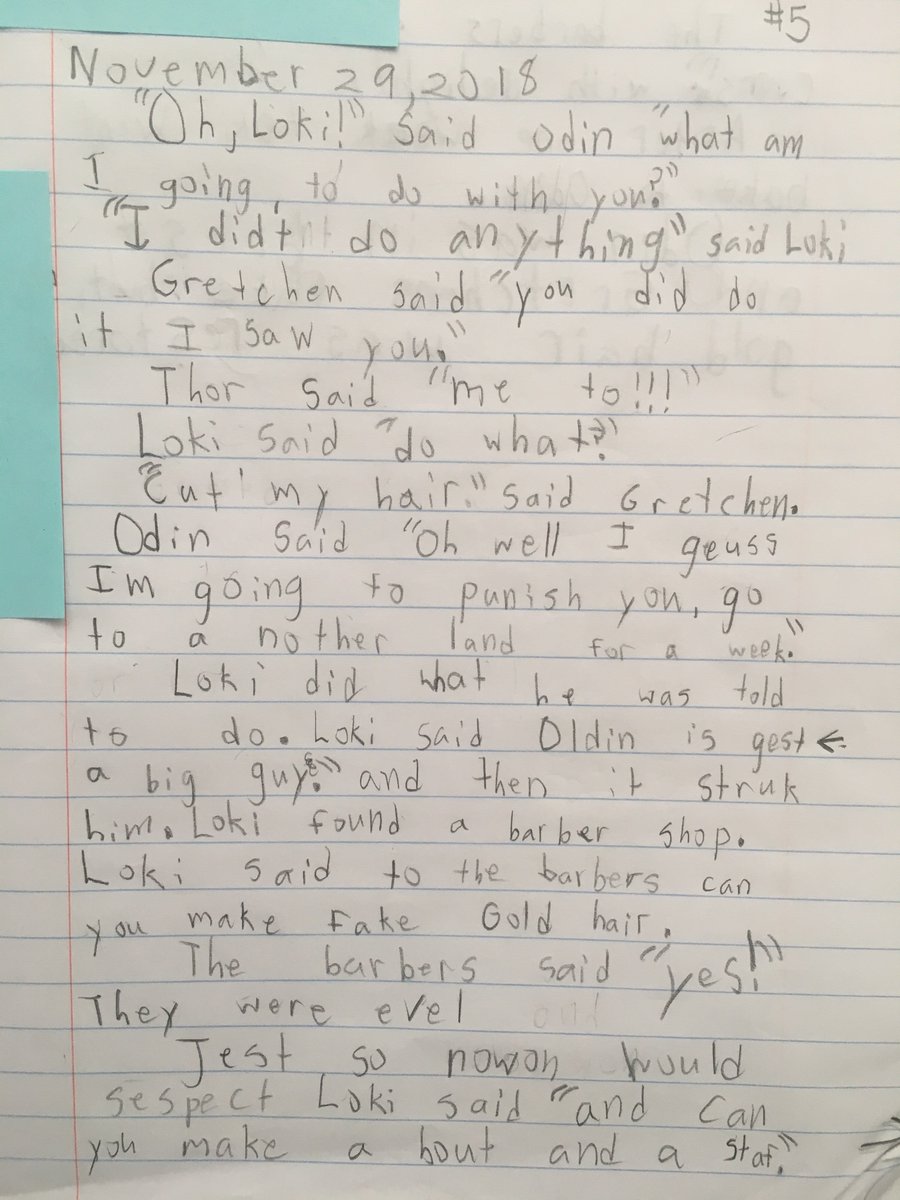 #5
November 29, 2018
"Oh, Loki!" said odin "what am
I going to do with you?"
"I did't do anything" said Loki
Gretchen said "you did do
it I saw you."
Thor said "me to!!!"
Loki said "do what?"
"Cut my hair." said Gretchen.
Odin said "Oh well I geuss
Im going to punish you, go
to a nother land for a week."
Loki did what he was told
to do. Loki said Oldin is gest
a big guy." and then it struk
him. Loki found a barber shop.
Loki said to the barbers can
you make fake Gold hair.
The barbers said "yes!"
They were evel
Jest so nowon would
sespect Loki said "and can
you make a bout and a staf."